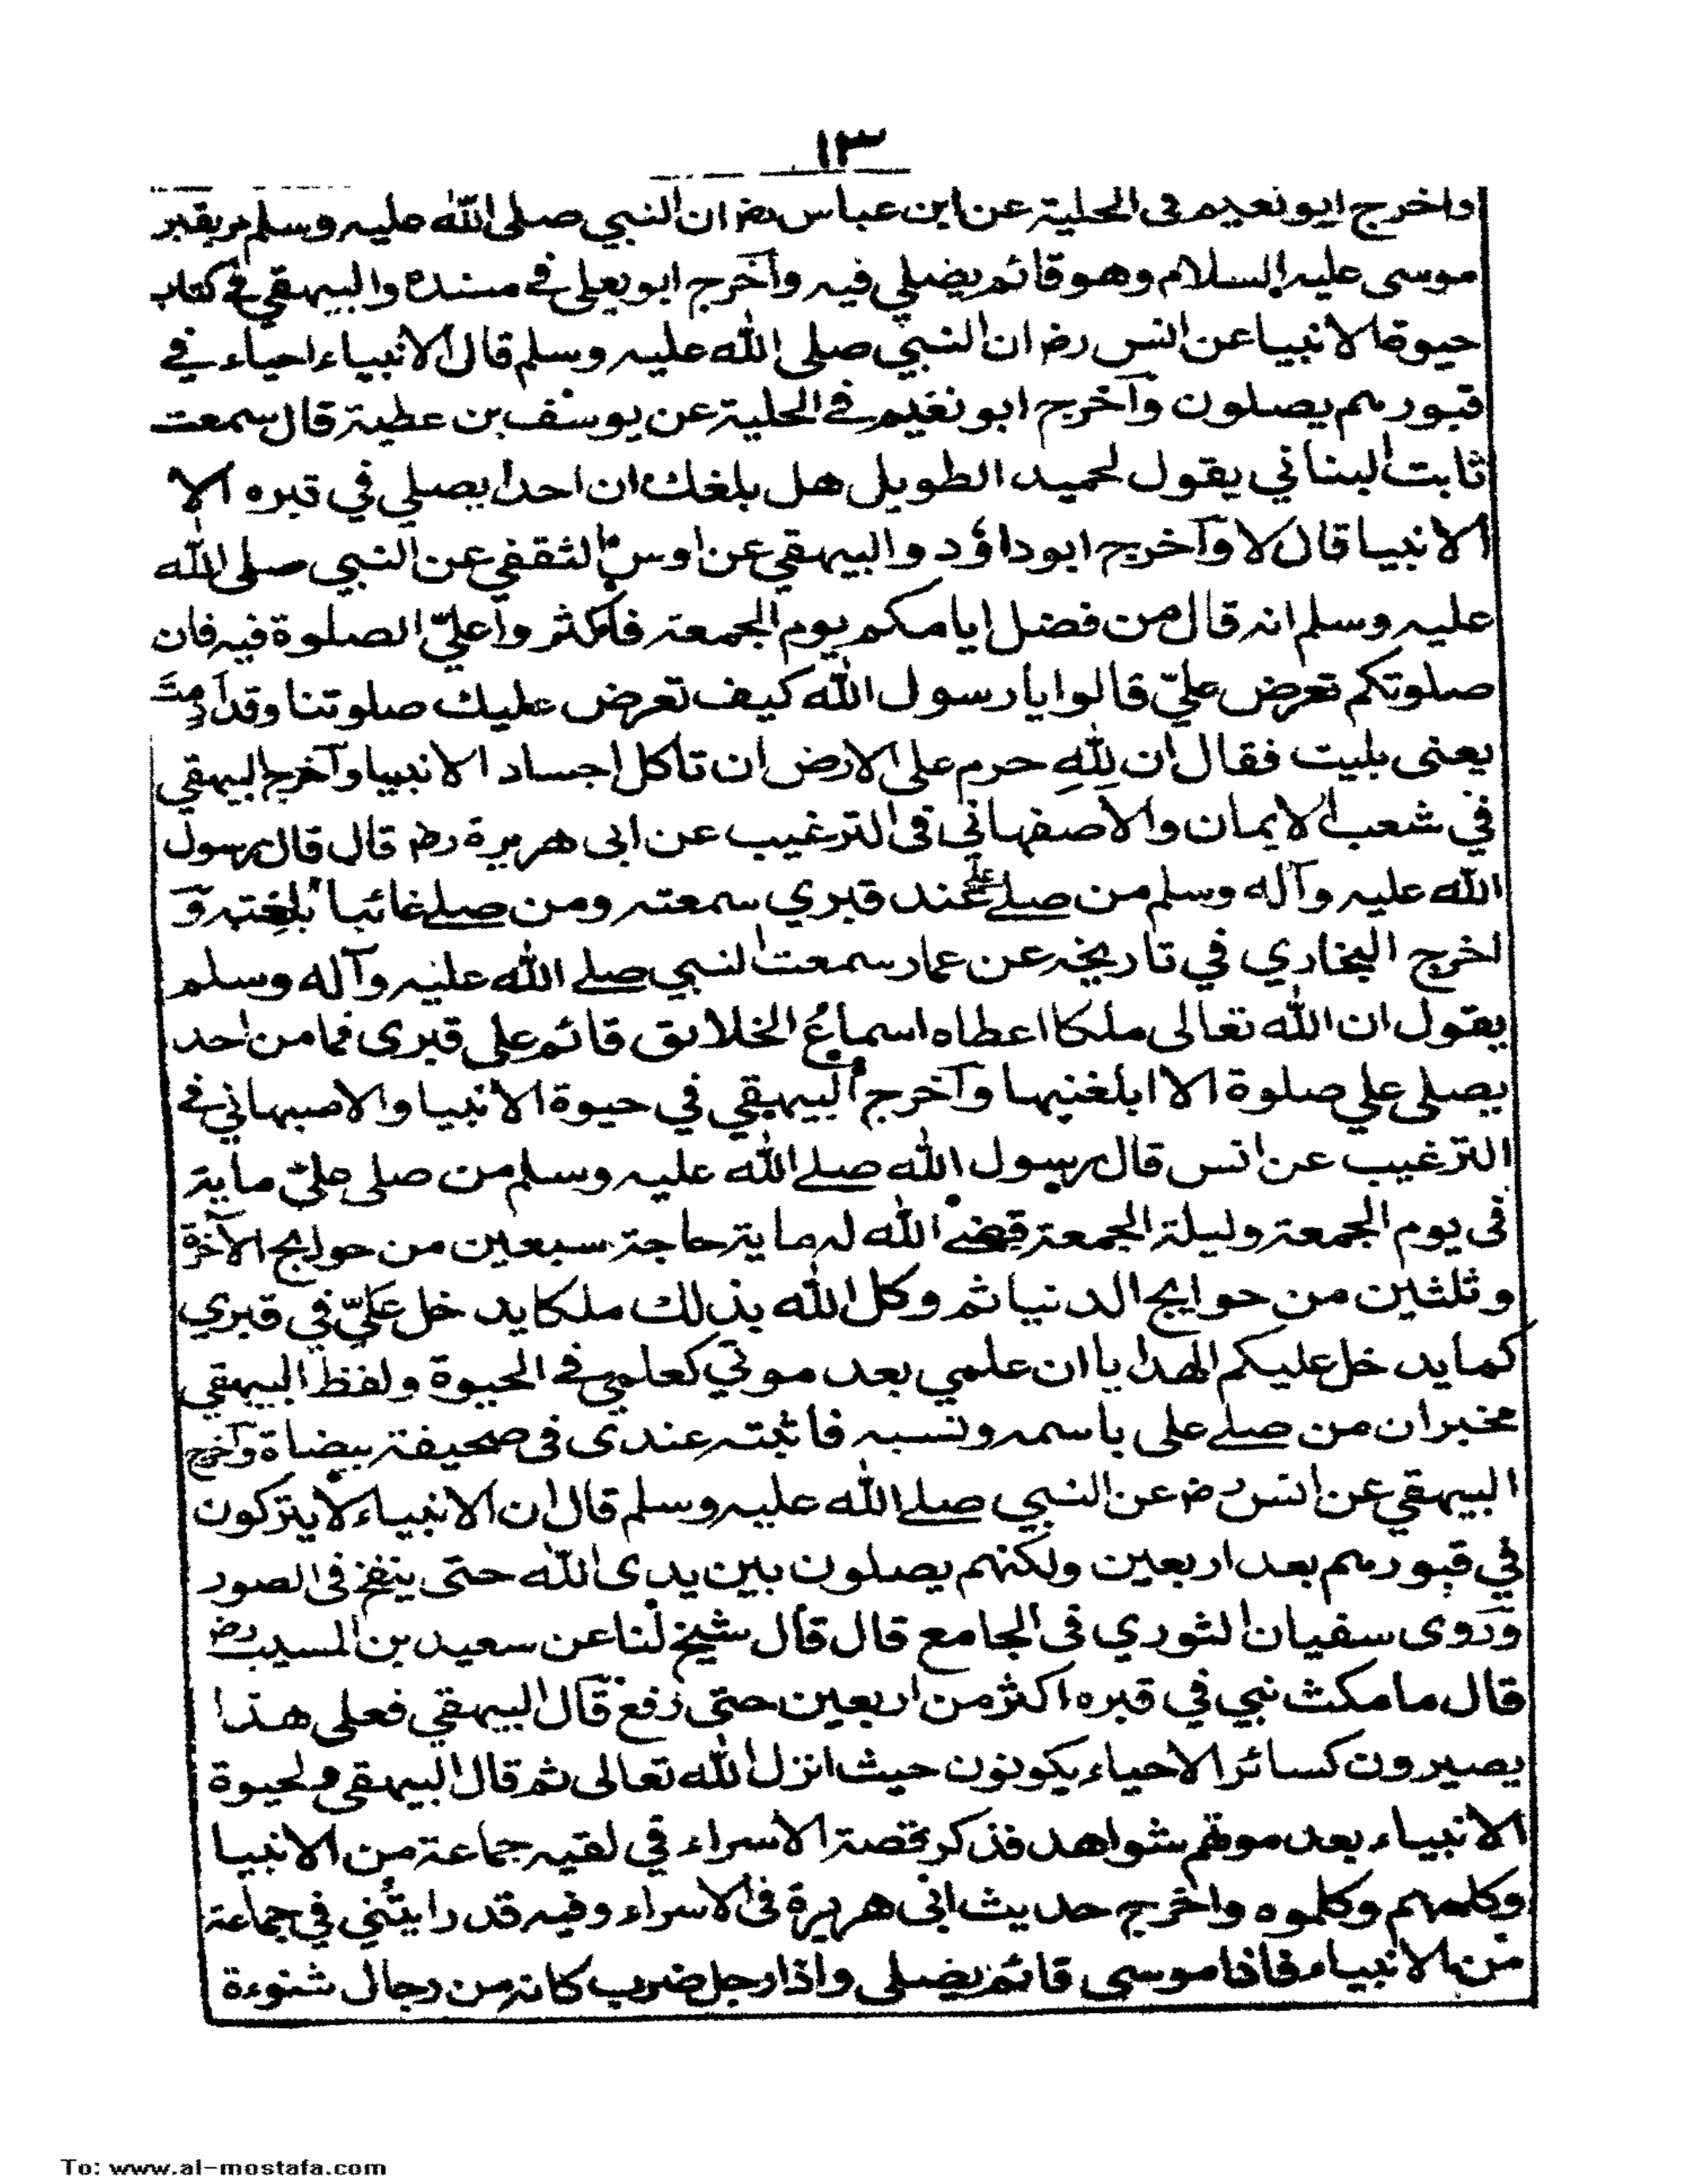 ١٣
واخرج ابو نعيم فى الحلية عن ابن عباس رض ان النبي صلى الله عليه وسلم مر بقبر
موسى عليه السلام وهو قائم يصلي فيه وآخرج ابو يعلى في مسنده والبيهقي في كتاب
حيوة الانبيا عن انس رض ان النبي صلى الله عليه وسلم قال الانبياء احياء في
قبورهم يصلون وآخرج ابو نعيم في الحلية عن يوسف بن عطية قال سمعت
ثابت البناني يقول لحميد الطويل هل بلغك ان احدا يصلي في قبره الا
الانبيا قال لا وآخرج ابو داؤد والبيهقي عن اوس الثقفي عن النبي صلى الله
عليه وسلم انه قال من فضل ايامكم يوم الجمعة فاكثروا عليّ الصلوة فيه فان
صلوتكم تعرض عليّ قالوا يا رسول الله كيف تعرض عليك صلوتنا وقد ارمت
يعنى بليت فقال ان للهِ حرم على الارض ان تاكل اجساد الانبيا وآخرج البيهقي
في شعب الايمان والاصفهاني فى الترغيب عن ابى هريرة رض قال قال رسول
الله عليه وآله وسلم من صلے علي عند قبري سمعته ومن صلے غائبا بلغته وَ
اخرج البخاري في تاريخه عن عمار سمعت النبي صلے الله عليه وآله وسلم
يقول ان الله تعالى ملكا اعطاه اسماع الخلائق قائم على قبرى فما من احد
يصلى علي صلوة الا ابلغنيها وآخرج البيهقي في حيوة الانبيا والاصبهاني في
الترغيب عن انس قال رسول الله صلے الله عليه وسلم من صلى عليّ ماية
فى يوم الجمعة وليلة الجمعة قضے الله له ماية حاجة سبعين من حوايج الآخرة
وثلثين من حوايج الدنيا ثم وكل الله بذلك ملكا يدخل عَليّ في قبري
كما يدخل عليكم الهدايا ان علمي بعد موتي كعلمي في الحيوة ولفظ البيهقي
مخبران من صلے على باسمه ونسبه فاثبته عندى فى صحيفة بيضاة وآخرج
البيهقي عن انس رض عن النبي صلے الله عليه وسلم قال ان الانبياء لا يتركون
في قبورهم بعد اربعين ولكنهم يصلون بين يدى الله حتى ينفخ فى الصور
وَروى سفيان الثوري فى الجامع قال قال شيخ لنا عن سعيد بن المسيب رض
قال ما مكث نبي في قبره اكثر من اربعين حتى رفع قال البيهقي فعلى هذا
يصيرون كسائر الاحياء يكونون حيث انزل الله تعالى ثم قال البيهقى ولحيوة
الانبياء بعد موتهم شواهد فذكر قصة الاسراء في لقيه جماعة من الانبيا
وكلمهم وكلموه واخرج حديث ابى هريرة فى الاسراء وفيه قد رايتُني في جماعة
من الانبياء فاذا موسى قائم يصلى واذا رجل ضرب كانه من رجال شنوءة
To: www.al-mostafa.com